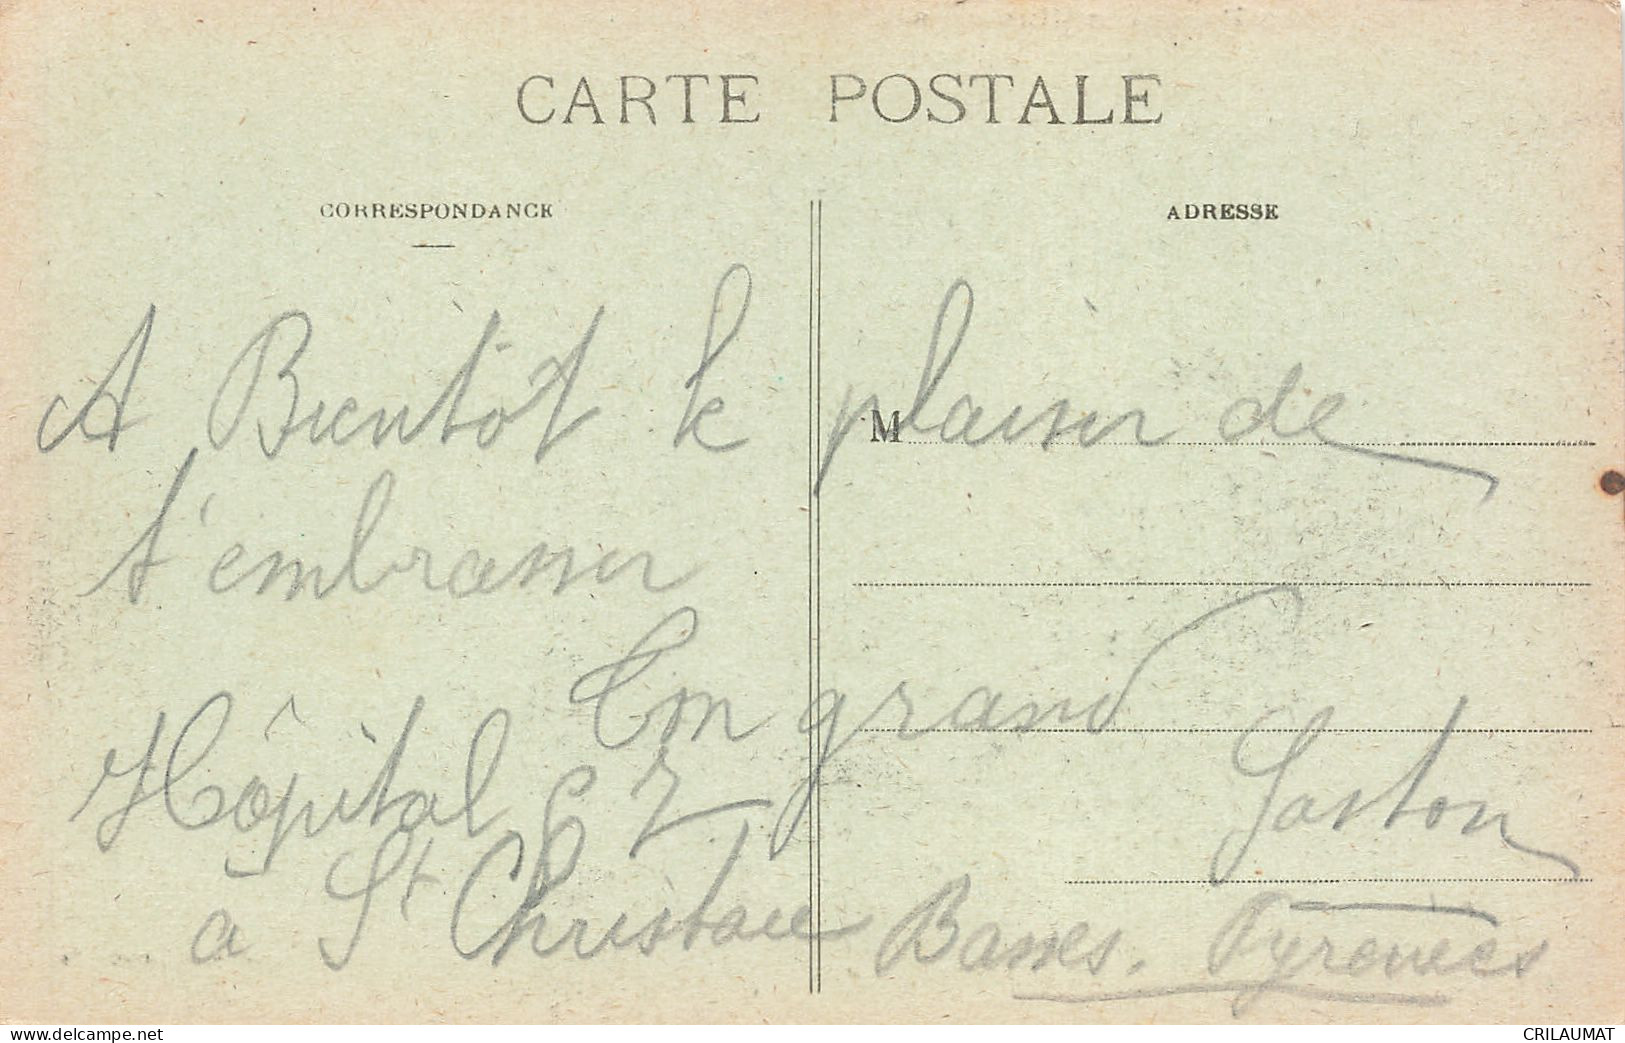 CARTE POSTALE
CORRESPONDANCE
ADRESSE
A Bientôt le plaisir de
M
t'embrasser
Ton grand
Gaston
Hôpital 67
à St Christau Basses. Pyrénées
www.delcampe.net
CRILAUMAT